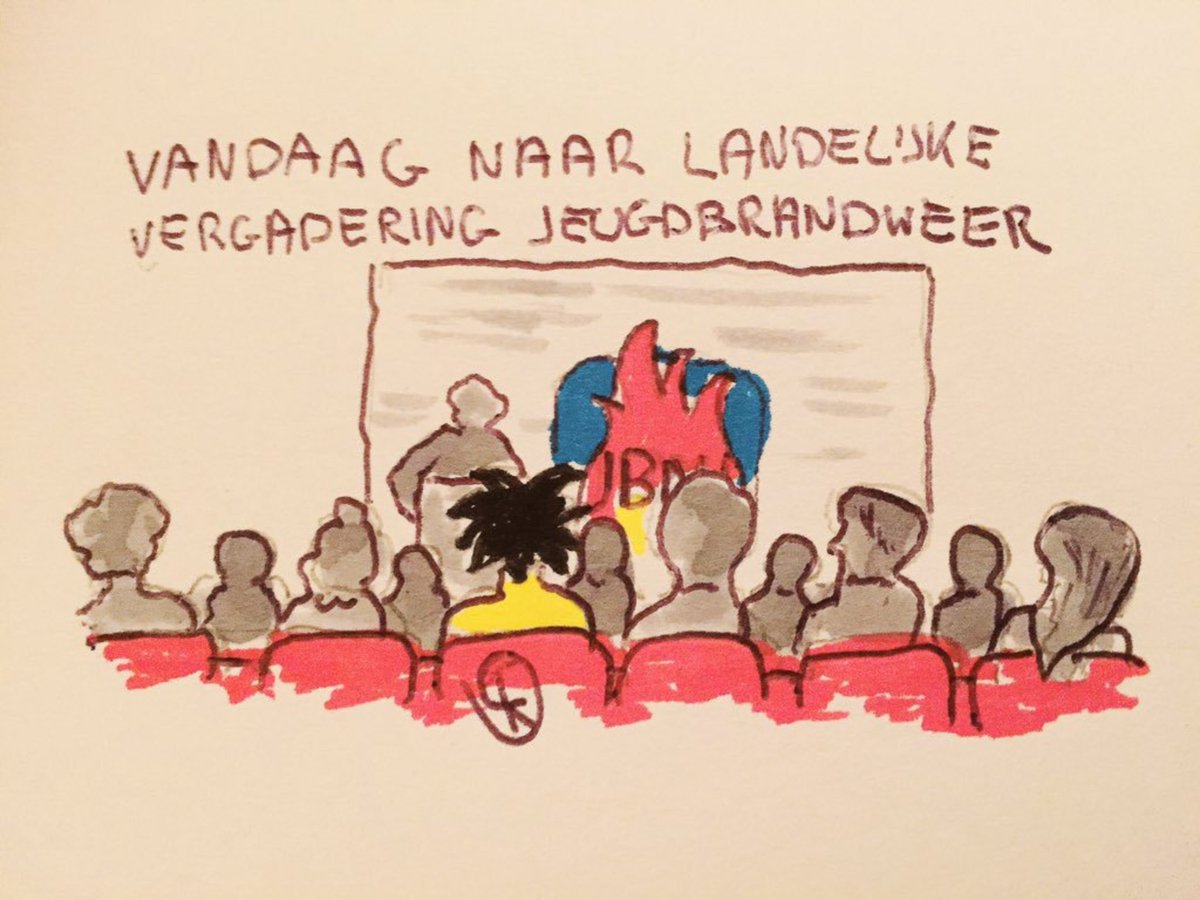 VANDAAG NAAR LANDELIJKE
VERGADERING JEUGDBRANDWEER